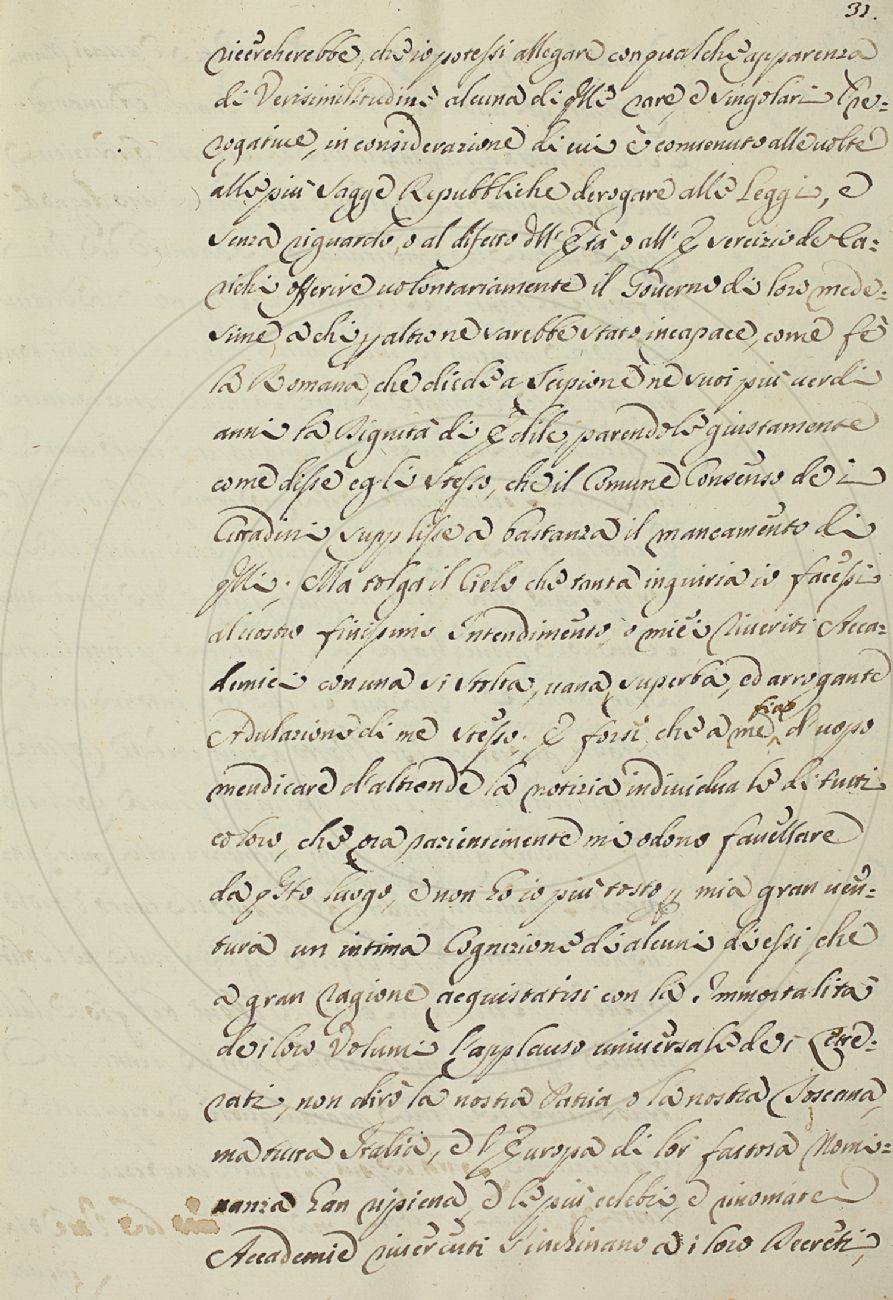 31.
ricercherebbe, che io potessi allegare con qualche apparenza
di Verisimilitudine alcuna di q̃lle rare, e singolari Pre-
rogative, in considerazione di cui è convenuto alle volte
alle più Sagge Repubbliche derogare alle Leggi, e
senza riguardo, o al difetto dell' Età, o all' Esercizio de Ca-
richi offerire volontariamente il Governo di loro mede-
sime a chi p altro ne sarebbe stato incapace, come fè
la Romana, che diede a Scipione ne suoi più verdi
anni la Dignità di Edile, parendole giustamente
come disse egli stesso, che il Comune Consenso de i
Cittadini supplisse a bastanza il mancamento di
q̃lli. Ma tolga il Cielo che tanta ingiuria io facessi
al vostro finissimo Intendimento, o miei Riveriti Acca-
demici con una sì stolta, vana, superba, ed arrogante
Adulazione di me stesso. E forsi, che a me fia d'uopo
mendicare d'altronde la notizia individuale di tutti
coloro, che ora pazientemente mi odono favellare
da q̃sto luogo, e non ho io più tosto p mia gran ven-
tura un intima Cognizione di alcuni di essi, che
a gran ragione acquistatisi con la Immortalità
de i loro Volumi l'applauso universale de i Lette-
rati, non dirò la nostra Patria, o la nostra Toscana,
ma tutta Italia, e l'Europa di lor fastosa Nomi-
nanza han ripiena, e le più celebri, e rinomate
Accademie riverenti s'inchinano a i loro Decreti,